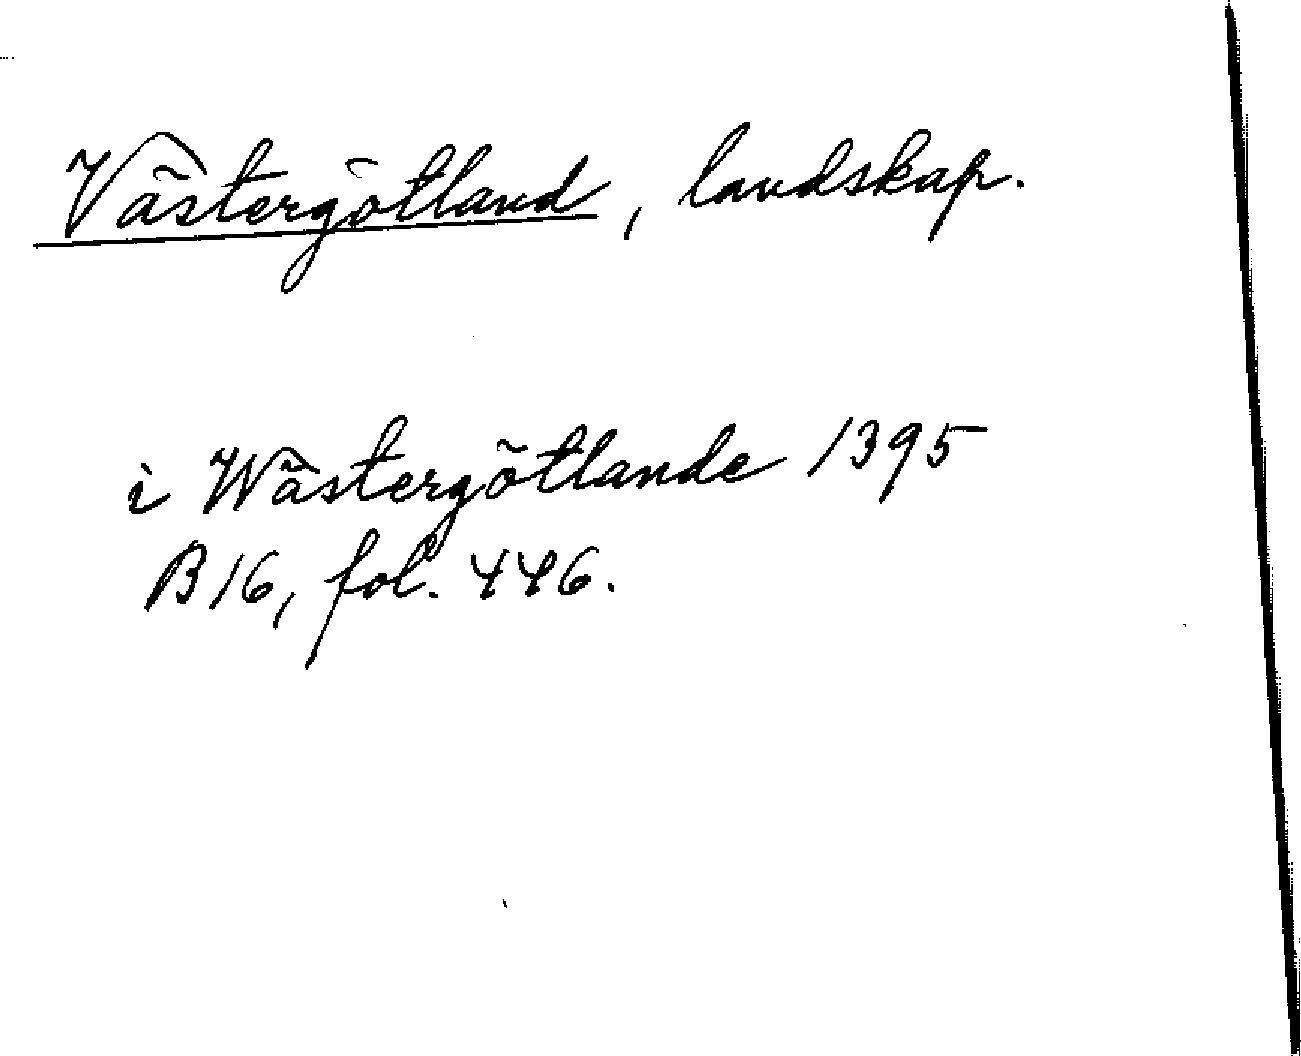 Västergötland, landskap.
i Wästergötlande 1395
B16, fol. 446.